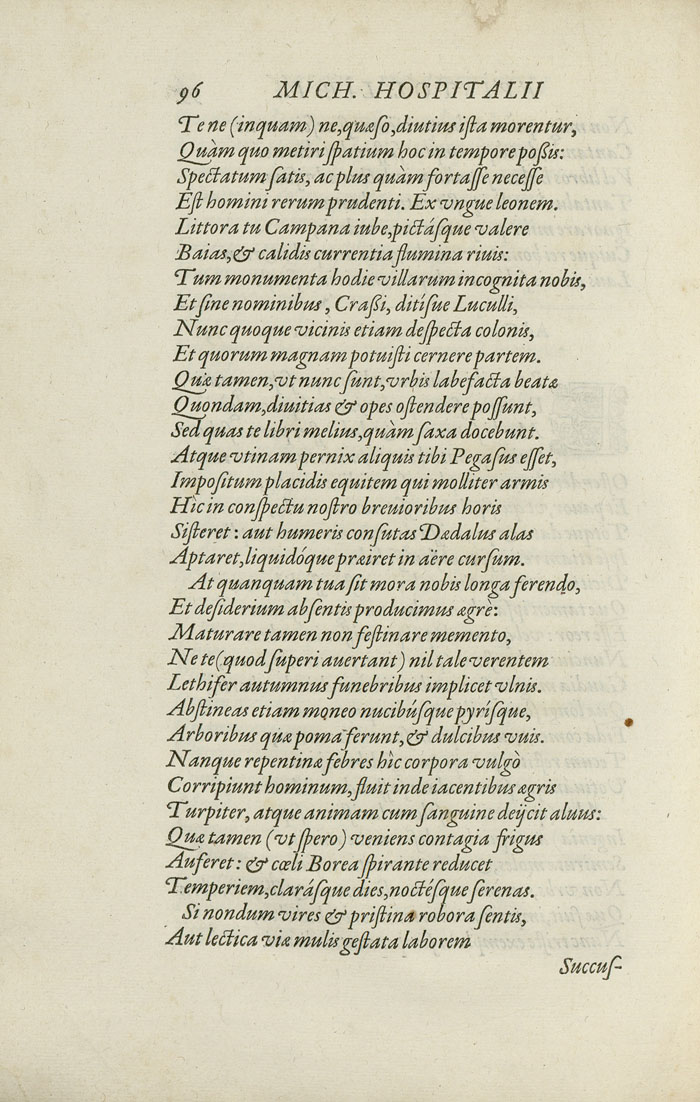 96 MICH. HOSPITALII
Te ne (inquam) ne, quæso, diutius ista morentur,
Quàm quo metiri spatium hoc in tempore poßis:
Spectatum satis, ac plus quàm fortasse necesse
Est homini rerum prudenti. Ex vngue leonem.
Littora tu Campana iube, pictásque valere
Baias, & calidis currentia flumina riuis:
Tum monumenta hodie villarum incognita nobis,
Et sine nominibus, Craßi, ditísue Luculli,
Nunc quoque vicinis etiam despecta colonis,
Et quorum magnam potuisti cernere partem.
Quæ tamen, vt nunc sunt, vrbis labefacta beatæ
Quondam, diuitias & opes ostendere possunt,
Sed quas te libri melius, quàm saxa docebunt.
Atque vtinam pernix aliquis tibi Pegasus esset,
Impositum placidis equitem qui molliter armis
Hîc in conspectu nostro breuioribus horis
Sisteret: aut humeris consutas Dædalus alas
Aptaret, liquidóque præiret in aëre cursum.
At quanquam tua sit mora nobis longa ferendo,
Et desiderium absentis producimus ægrè:
Maturare tamen non festinare memento,
Ne te (quod superi auertant) nil tale verentem
Lethifer autumnus funebribus implicet vlnis.
Abstineas etiam moneo nucibúsque pyrísque,
Arboribus quæ poma ferunt, & dulcibus vuis.
Nanque repentinæ febres hîc corpora vulgò
Corripiunt hominum, fluit inde iacentibus ægris
Turpiter, atque animam cum sanguine deijcit aluus:
Quæ tamen (vt spero) veniens contagia frigus
Auferet: & cœli Borea spirante reducet
Temperiem, clarásque dies, noctésque serenas.
Si nondum vires & pristina robora sentis,
Aut lectica viæ mulis gestata laborem
Succus-